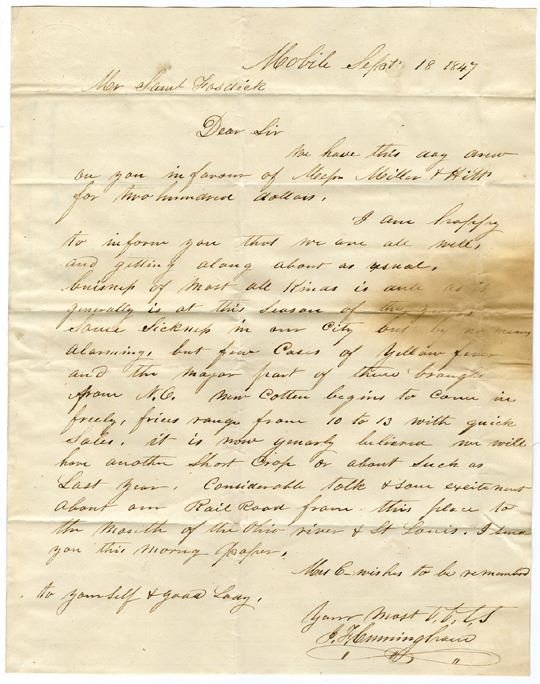 Mobile Sept 18 1847
Mr Saml Fosdick
Dear Sir
We have this day drew
on you in favour of Messrs Miller & Hills
for two hundred dollars.
I am happy
to inform you that we are all well,
and getting along about as usual.
buisness of most all kinds is dull as it
generally is at this Season of the year
Some Sickness in our City but by no means
alarming, but few Cases of Yellow fever
and the major part of these brought
from N.O. New Cotten begins to Come in
freely, prices range from 10 to 13 with quick
Sales. it is now generly believed we will
have another Short Crop or about Such as
Last Year. Considerable talk & some exitement
about our Rail Road from this place to
the Mouth of the Ohio river & St Louis. I send
you this morng paper.
Mrs C wishes to be remembered
to yourself & good Lady.
Your most